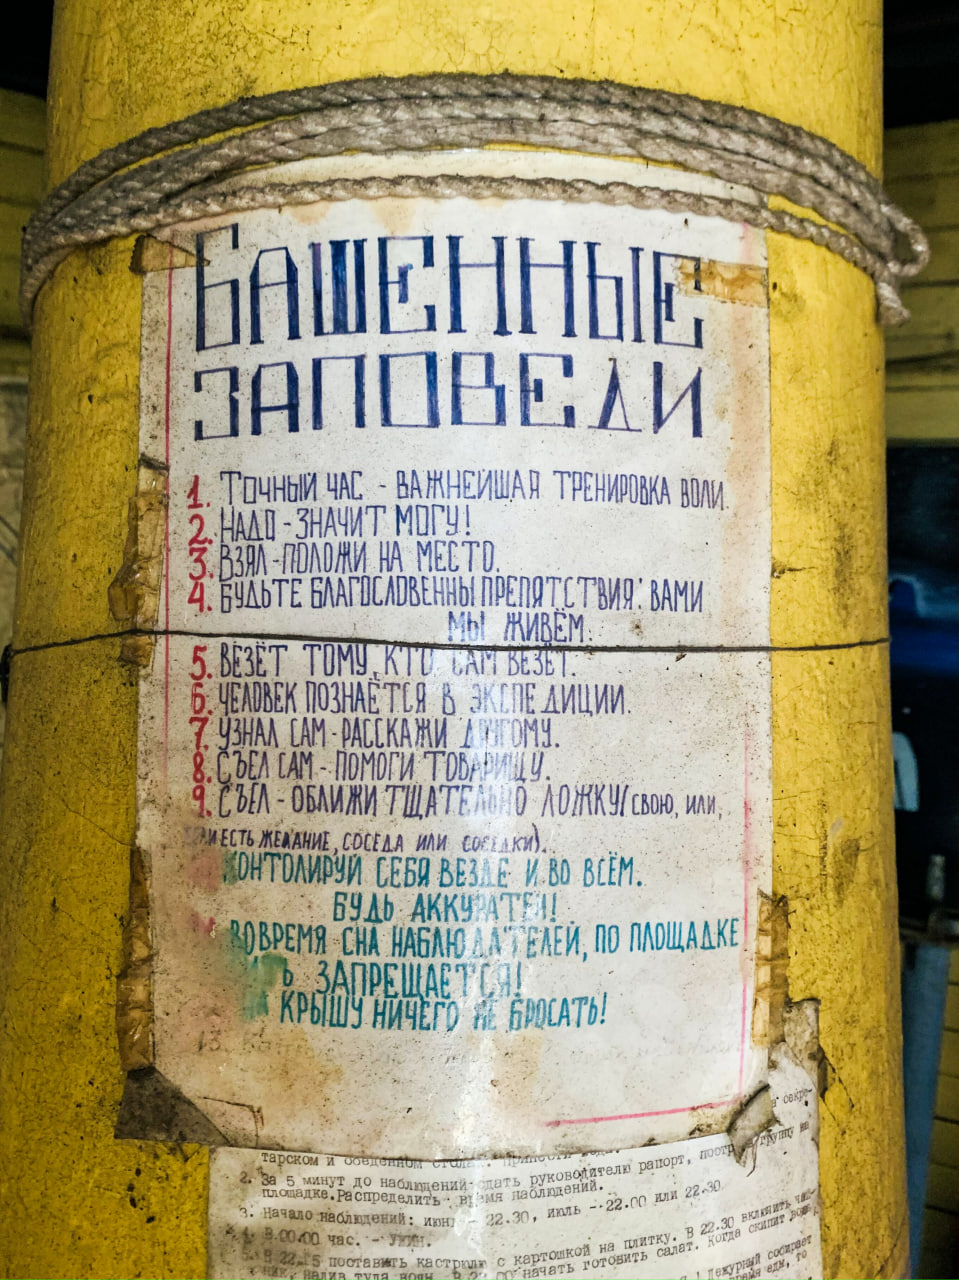 БАШЕННЫЕ
ЗАПОВЕДИ
1. ТОЧНЫЙ ЧАС - ВАЖНЕЙШАЯ ТРЕНИРОВКА ВОЛИ.
2. НАДО - ЗНАЧИТ МОГУ!
3. ВЗЯЛ - ПОЛОЖИ НА МЕСТО.
4. БУДЬТЕ БЛАГОСЛОВЕННЫ ПРЕПЯТСТВИЯ: ВАМИ
МЫ ЖИВЁМ.
5. ВЕЗЁТ ТОМУ, КТО САМ ВЕЗЁТ.
6. ЧЕЛОВЕК ПОЗНАЁТСЯ В ЭКСПЕДИЦИИ.
7. УЗНАЛ САМ - РАССКАЖИ ДРУГОМУ.
8. СЪЕЛ САМ - ПОМОГИ ТОВАРИЩУ.
9. СЪЕЛ - ОБЛИЖИ ТЩАТЕЛЬНО ЛОЖКУ (СВОЮ, ИЛИ,
ЕСТЬ ЖЕЛАНИЕ, СОСЕДА ИЛИ СОСЕДКИ).
КОНТОЛИРУЙ СЕБЯ ВЕЗДЕ И ВО ВСЁМ.
БУДЬ АККУРАТЕН!
ВОВРЕМЯ СНА НАБЛЮДАТЕЛЕЙ, ПО ПЛОЩАДКЕ
Ь ЗАПРЕЩАЕТСЯ!
КРЫШУ НИЧЕГО НЕ БРОСАТЬ!
тарском и обеденном столах.
2. За 5 минут до наблюдений сдать руководителю рапорт, группу на
площадке. Распределить время наблюдений.
3. Начало наблюдений: июнь 22.30, июль - 22.00 или 22.30
час. - УЖИН.
22.15 поставить кастрюлю с картошкой на плитку. В 22.30 включить
начать готовить салат. Когда скипит
Дежурный собирает